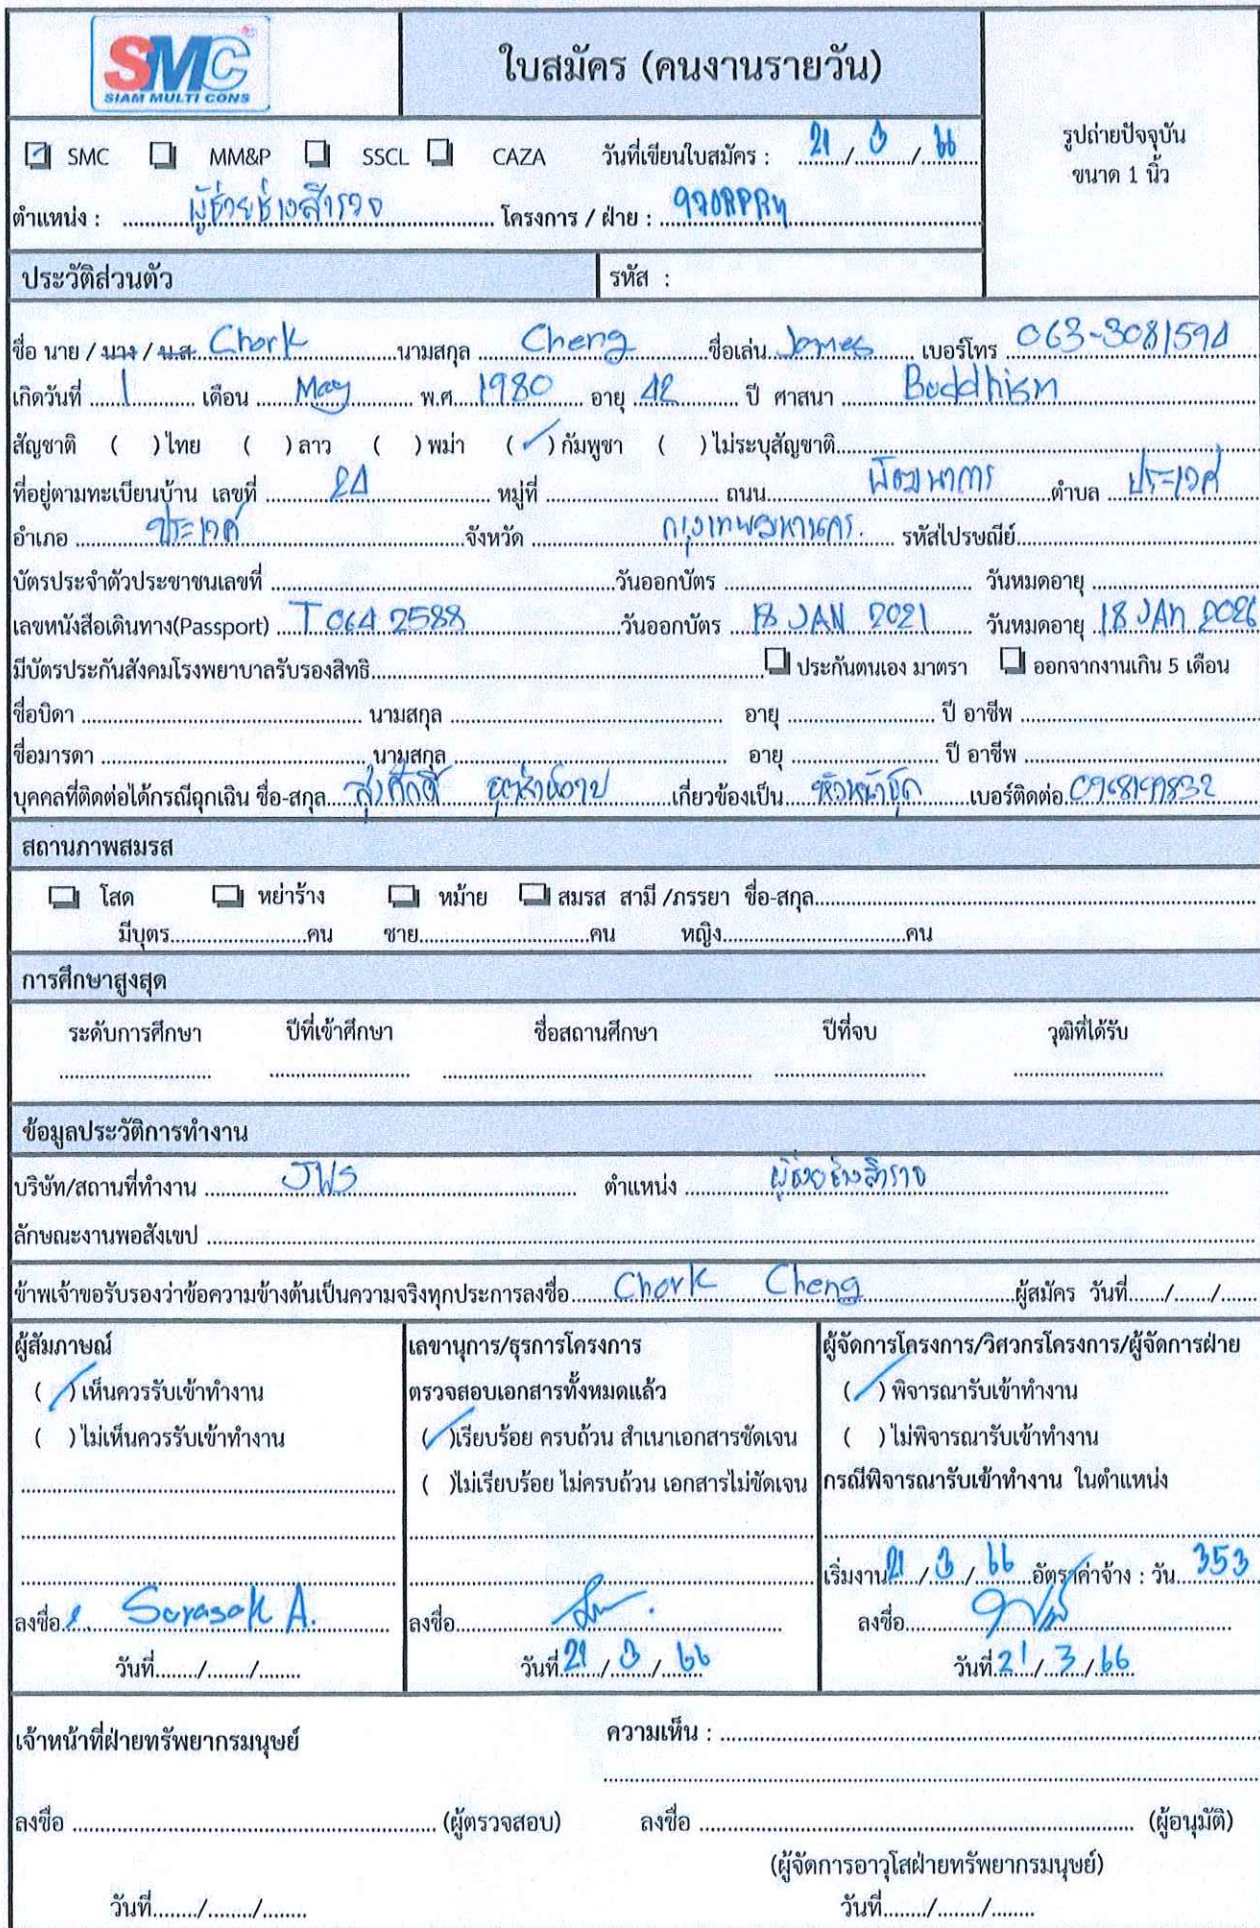 SMC
SIAM MULTI CONS
ใบสมัคร (คนงานรายวัน)
รูปถ่ายปัจจุบัน
ขนาด 1 นิ้ว
SMC MM&P SSCL CAZA วันที่เขียนใบสมัคร : 21/3/66
ตำแหน่ง : ผู้ช่วยช่างสำรวจ โครงการ / ฝ่าย :
ประวัติส่วนตัว รหัส :
ชื่อ นาย / นาง / น.ส. Chork นามสกุล Cheng ชื่อเล่น James เบอร์โทร 063-3081594
เกิดวันที่ 1 เดือน May พ.ศ. 1980 อายุ 42 ปี ศาสนา Buddhism
สัญชาติ ( ) ไทย ( ) ลาว ( ) พม่า ( ✓ ) กัมพูชา ( ) ไม่ระบุสัญชาติ
ที่อยู่ตามทะเบียนบ้าน เลขที่ 24 หมู่ที่ ถนน พัฒนาการ ตำบล ประเวศ
อำเภอ ประเวศ จังหวัด กรุงเทพมหานคร. รหัสไปรษณีย์
บัตรประจำตัวประชาชนเลขที่ วันออกบัตร วันหมดอายุ
เลขหนังสือเดินทาง(Passport) T 064 2588 วันออกบัตร 18 JAN 2021 วันหมดอายุ 18 JAN 2026
มีบัตรประกันสังคมโรงพยาบาลรับรองสิทธิ ประกันตนเอง มาตรา ออกจากงานเกิน 5 เดือน
ชื่อบิดา นามสกุล อายุ ปี อาชีพ
ชื่อมารดา นามสกุล อายุ ปี อาชีพ
บุคคลที่ติดต่อได้กรณีฉุกเฉิน ชื่อ-สกุล เกี่ยวข้องเป็น หัวหน้าชุด เบอร์ติดต่อ
สถานภาพสมรส
โสด หย่าร้าง หม้าย สมรส สามี /ภรรยา ชื่อ-สกุล
มีบุตร คน ชาย คน หญิง คน
การศึกษาสูงสุด
ระดับการศึกษา ปีที่เข้าศึกษา ชื่อสถานศึกษา ปีที่จบ วุฒิที่ได้รับ
ข้อมูลประวัติการทำงาน
บริษัท/สถานที่ทำงาน JWS ตำแหน่ง ผู้ช่วยช่างสำรวจ
ลักษณะงานพอสังเขป
ข้าพเจ้าขอรับรองว่าข้อความข้างต้นเป็นความจริงทุกประการลงชื่อ Chork Cheng ผู้สมัคร วันที่ / /
ผู้สัมภาษณ์
( ✓ ) เห็นควรรับเข้าทำงาน
( ) ไม่เห็นควรรับเข้าทำงาน
ลงชื่อ Surasak A.
วันที่ / /
เลขานุการ/ธุรการโครงการ
ตรวจสอบเอกสารทั้งหมดแล้ว
( ✓ )เรียบร้อย ครบถ้วน สำเนาเอกสารชัดเจน
( )ไม่เรียบร้อย ไม่ครบถ้วน เอกสารไม่ชัดเจน
ลงชื่อ
วันที่ 21/3/66
ผู้จัดการโครงการ/วิศวกรโครงการ/ผู้จัดการฝ่าย
( ✓ ) พิจารณารับเข้าทำงาน
( ) ไม่พิจารณารับเข้าทำงาน
กรณีพิจารณารับเข้าทำงาน ในตำแหน่ง
เริ่มงาน 21/3/66 อัตราค่าจ้าง : วัน 353
ลงชื่อ
วันที่ 21/3/66
เจ้าหน้าที่ฝ่ายทรัพยากรมนุษย์ ความเห็น :
ลงชื่อ (ผู้ตรวจสอบ) ลงชื่อ (ผู้อนุมัติ)
(ผู้จัดการอาวุโสฝ่ายทรัพยากรมนุษย์)
วันที่ / / วันที่ / /